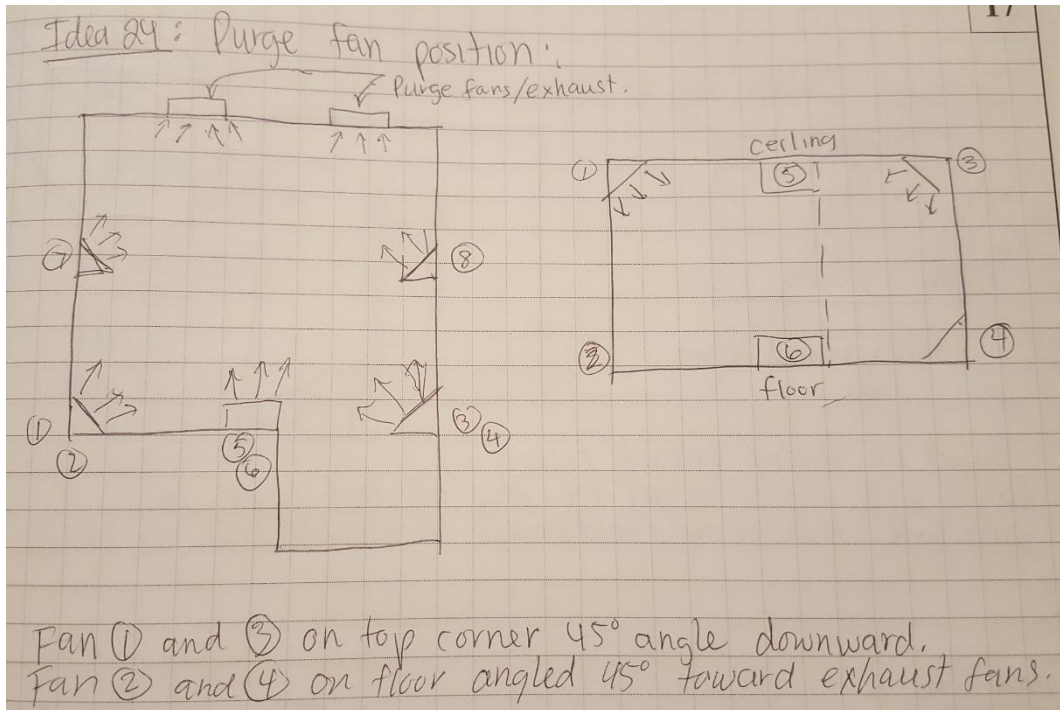 17
Idea 24: Purge fan position:
Purge fans/exhaust.
ceiling
① ⑤ ③
⑦ ⑧
② ⑥ ④
floor
① ③
④
② ⑤
⑥
Fan ① and ③ on top corner 45° angle downward.
Fan ② and ④ on floor angled 45° toward exhaust fans.